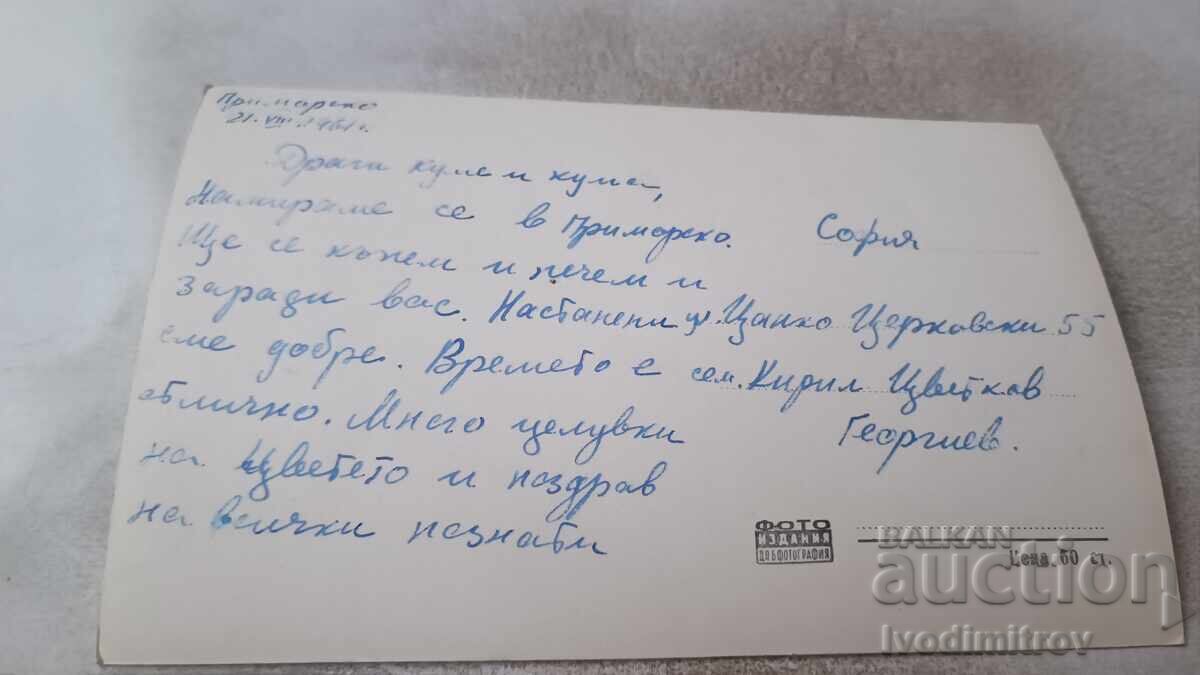 Приморско
21. VIII. 1961 г.
Драги куме и кума,
Намираме се в Приморско.
Ще се къпем и печем и
заради вас. Настанени
сме добре. Времето е
отлично. Много целувки
на Цветето и поздрав
на всички познати
София
ул. Цанко Церковски 55
сем. Кирил Цветков
Георгиев.
ФОТО
ИЗДАНИЯ
ДП БФОТОГРАФИЯ
Цена 60 ст.
BALKAN
auction
Ivodimitrov